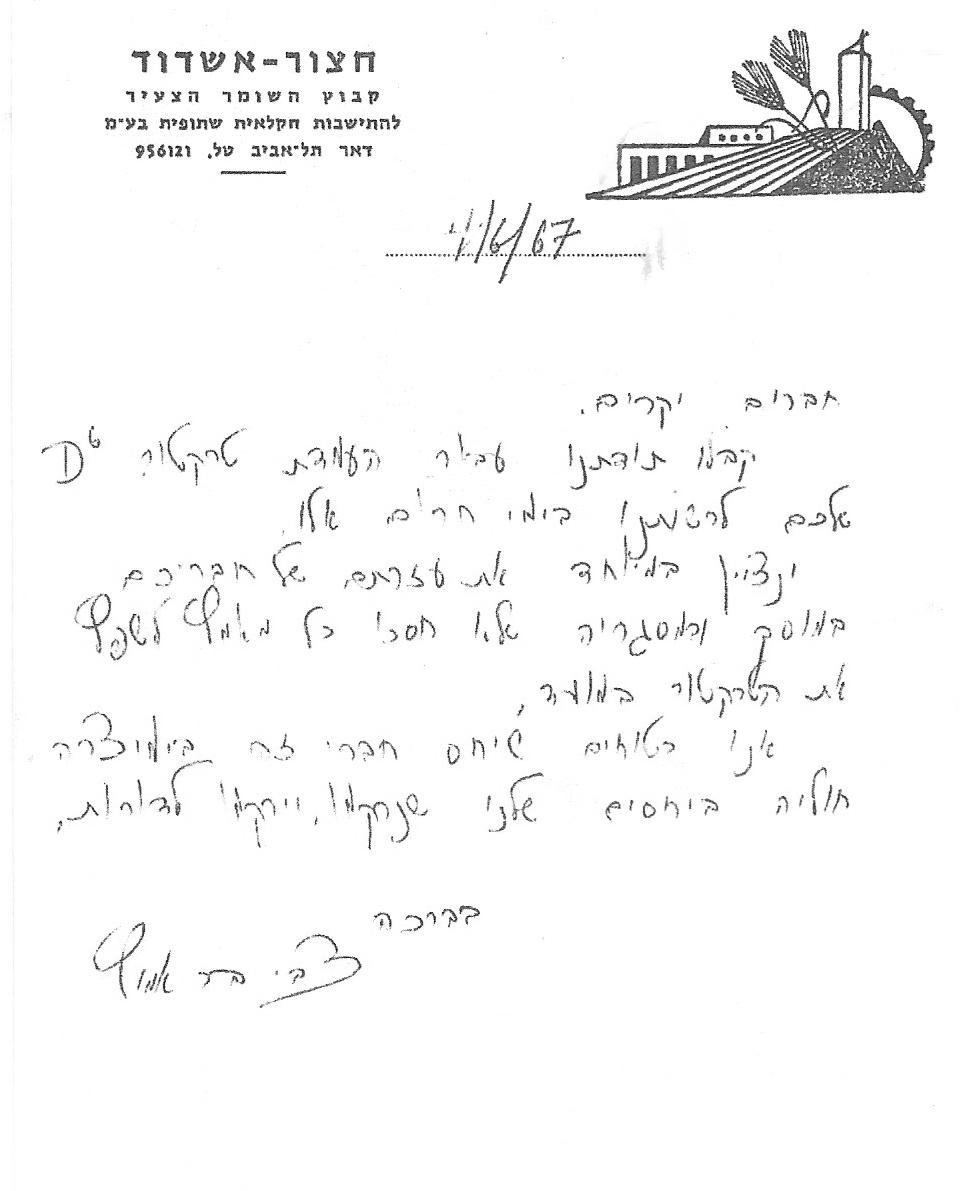 חצור-אשדוד
קבוץ השומר הצעיר
להתישבות חקלאית שתופית בע"מ
דאר תל-אביב טל. 956121
/6/67
חברים יקרים.
קבלו תודתנו עבור העמדת טרקטור D6
שלכם לרשותנו בימי חרום אלו.
ונציין במיוחד את עזרתם של חבריכם
במוסך ובמסגריה שלא חסכו כל מאמץ לשפץ
את הטרקטור במועד,
אנו בטוחים שיחס חברי זה
חוליה ביחסים שלנו שנרקמו, וירקמו לדורות.
בברכה
צבי בר אמוץ